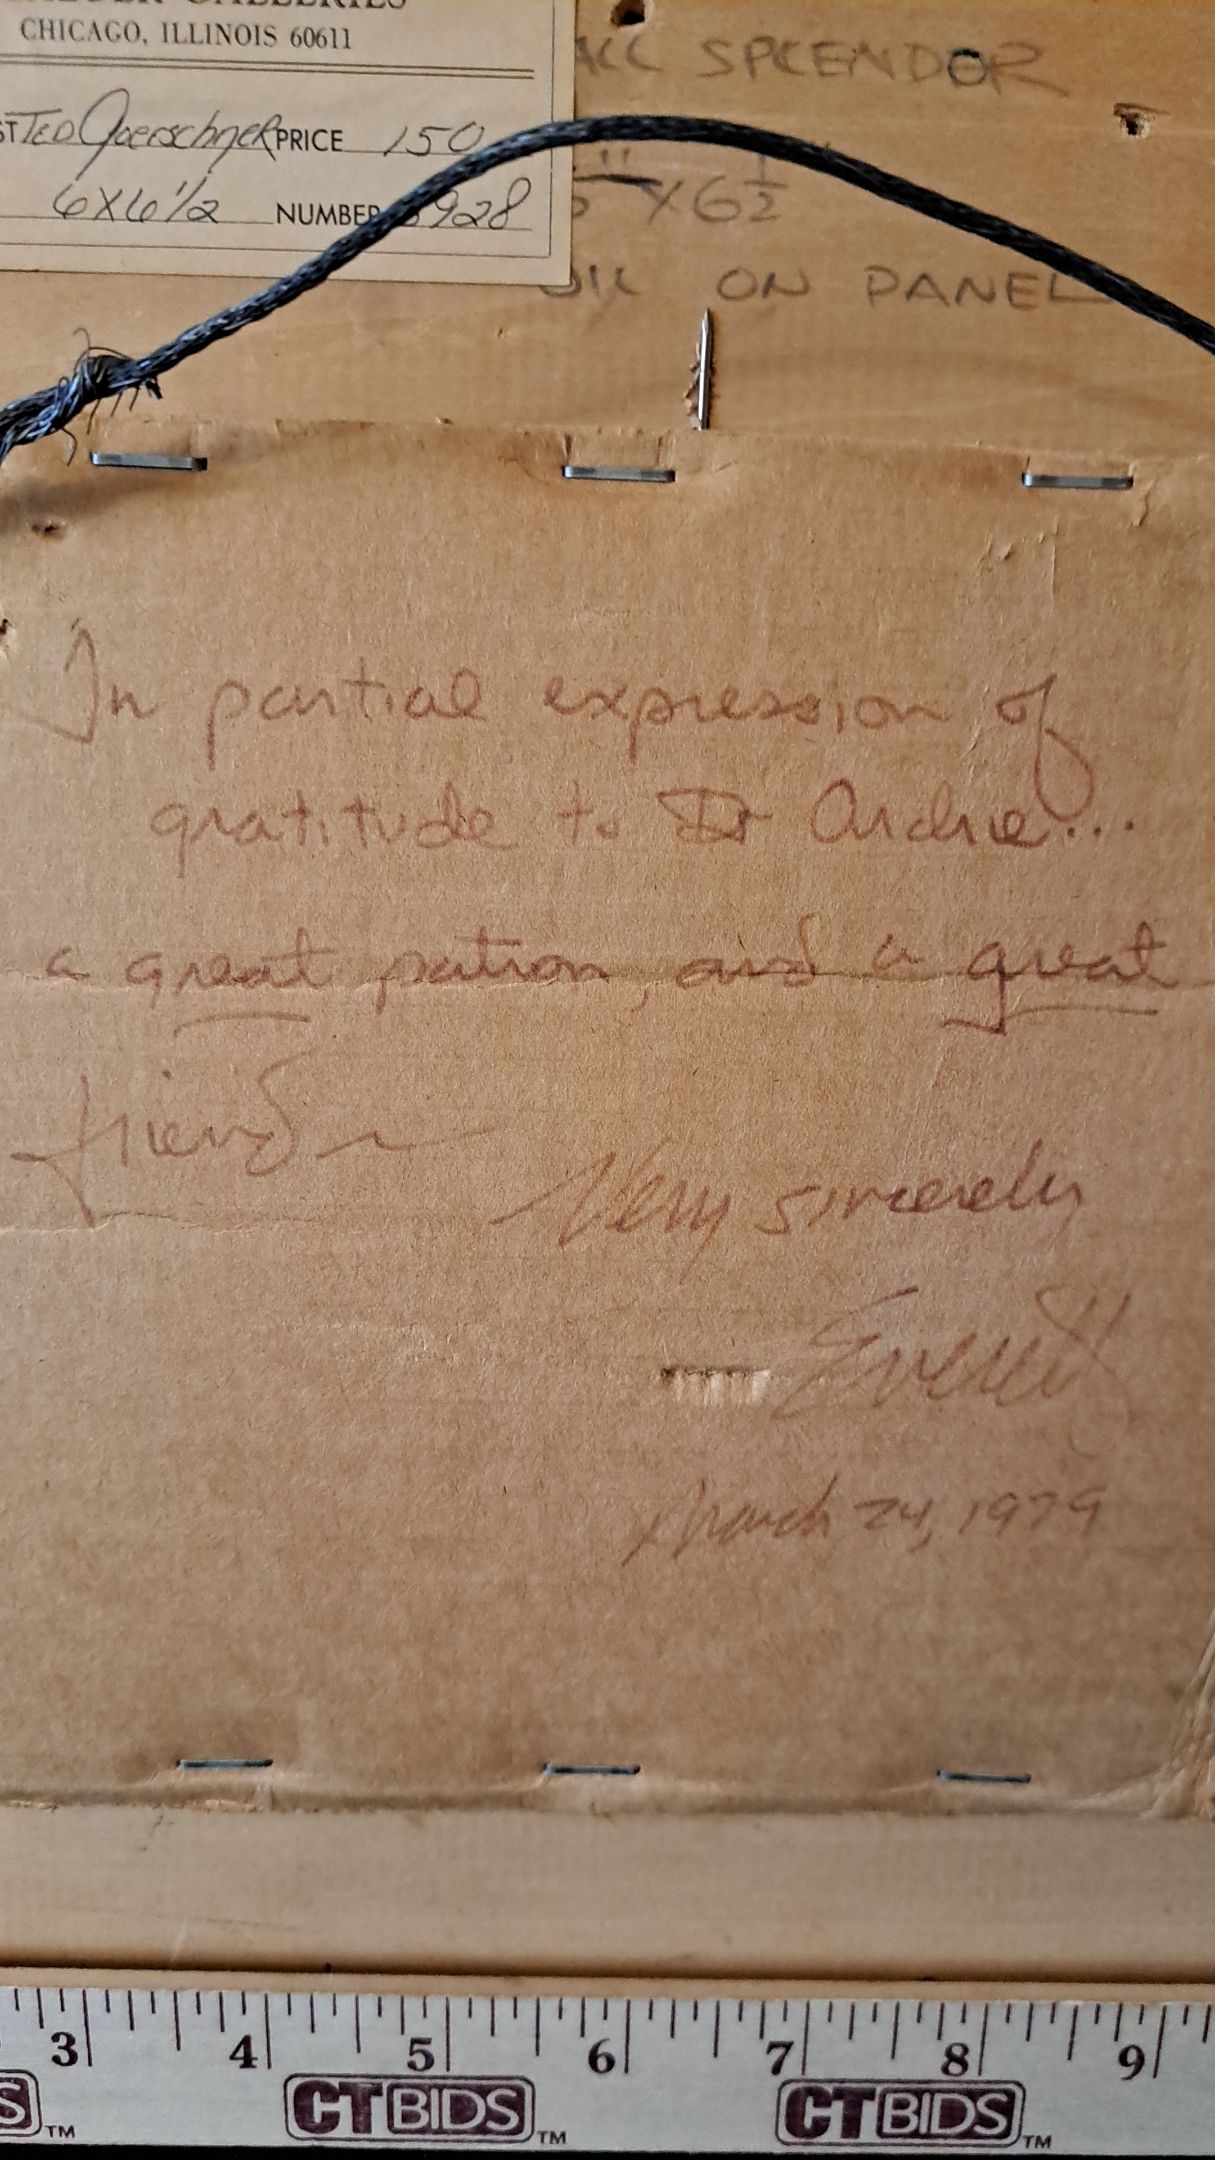 GALLERIES
CHICAGO, ILLINOIS 60611
TED Goerschner PRICE 150
6 X 6 1/2 NUMBER 928
SPLENDOR
X 6 1/2
OIL ON PANEL
In partial expression of
gratitude to Dr Archie...
a great patron, and a great
friend
Very sincerely
Everett
March 24, 1979
3 4 5 6 7 8 9
S™ CTBIDS™ CTBIDS™